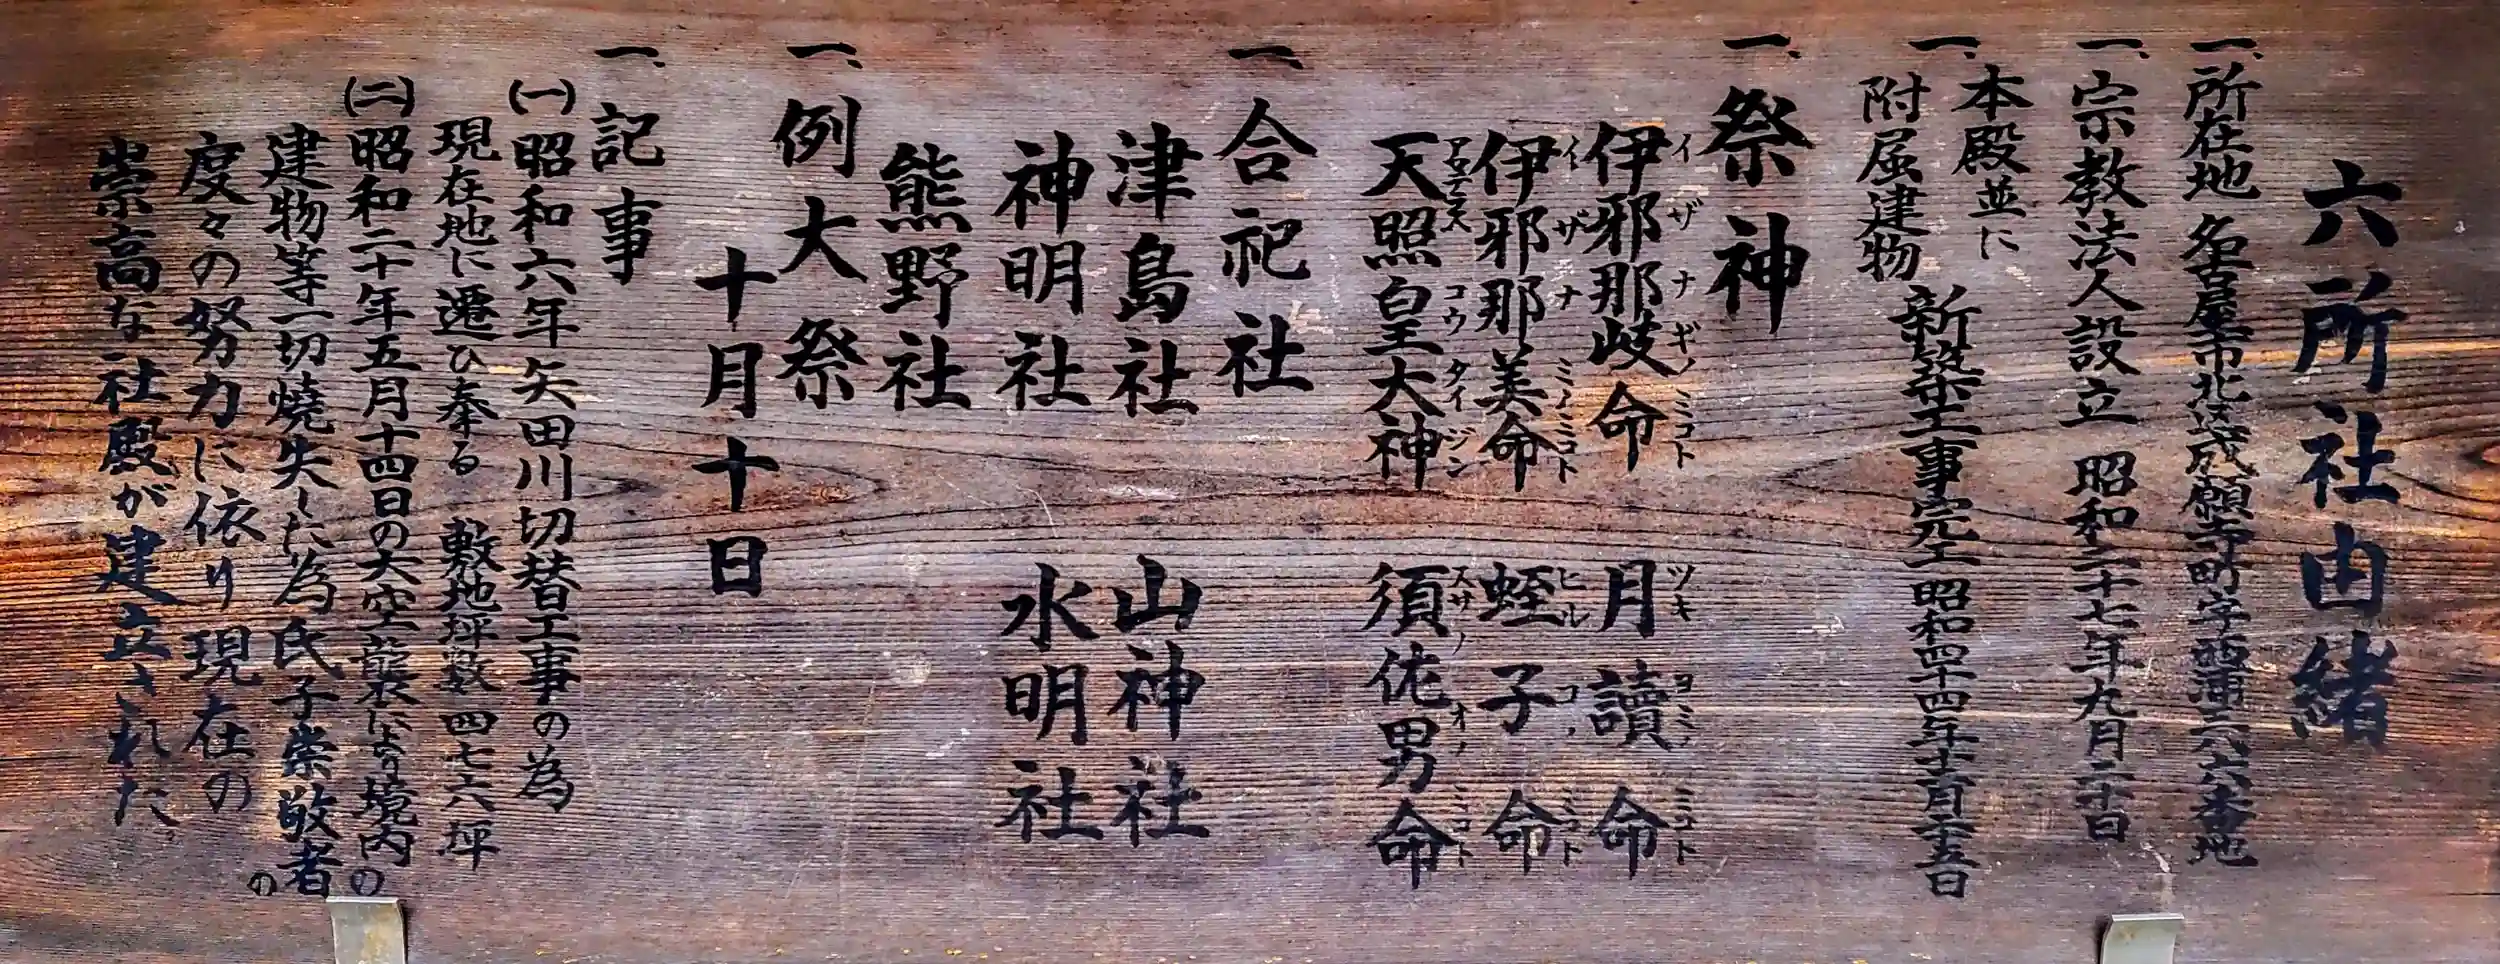 六所社由緒
一、所在地 名古屋市北区成願寺町字西浦二六六番地
一、宗教法人設立 昭和二十七年九月二十日
一、本殿並に
附屈建物
新築工事完工 昭和四十四年十二月二十五日
一、祭神
伊邪那岐命 月讀命
イザナギノミコト ツキヨミノミコト
伊邪那美命 蛭子命
イザナミノミコト ヒルコノミコト
天照皇大神 須佐男命
アマテラスコウタイジン スサノオノミコト
一、合祀社
津島社 山神社
神明社 水明社
熊野社
一、例大祭
十月十日
一、記事
(一)昭和六年矢田川切替工事の為
現在地に遷ひ奉る 敷地坪数四七六坪
(二)昭和二十年五月十四日の大空襲により境内の
建物等一切焼失した為氏子崇敬者の
度々の努力に依り現在の
崇高な社殿が建立された。